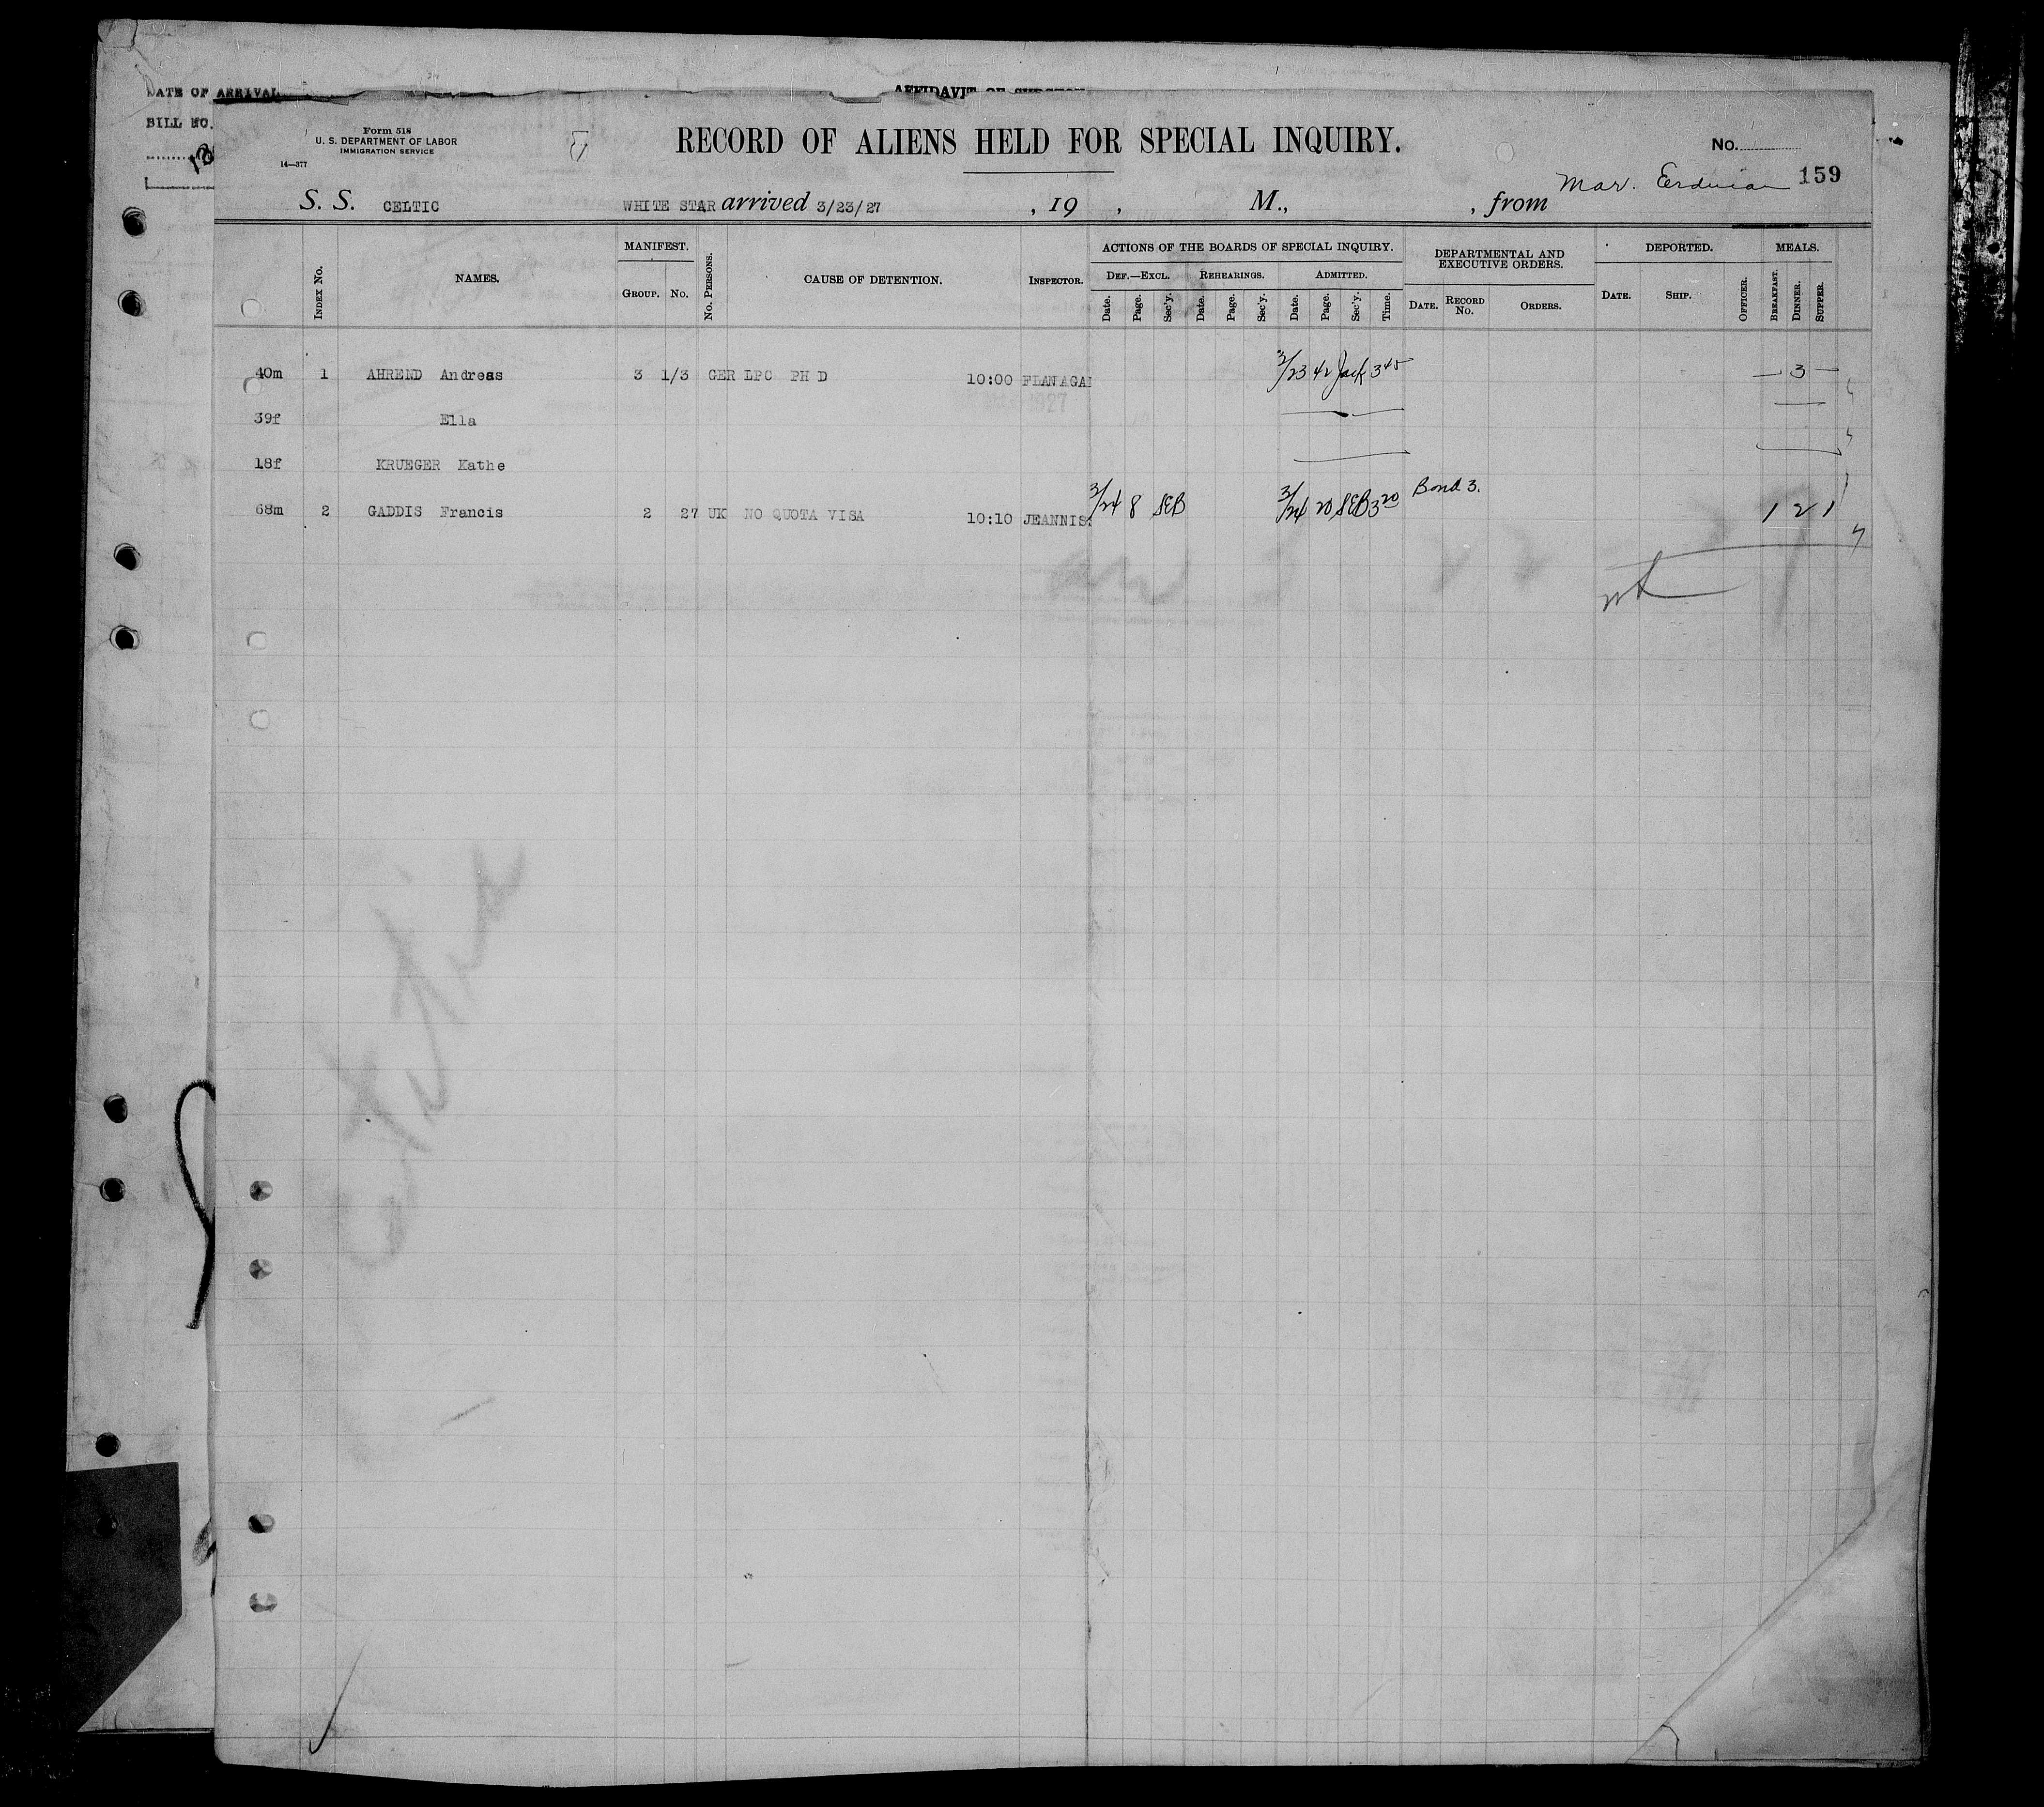 DATE OF ARRIVAL
AFFIDAVIT OF SURGEON
BILL NO.
Form 518
U. S. DEPARTMENT OF LABOR
IMMIGRATION SERVICE
14—377
RECORD OF ALIENS HELD FOR SPECIAL INQUIRY.
No.
159
S. S. CELTIC WHITE STAR arrived 3/23/27 , 19 , M., , from Mar.
INDEX No. NAMES. MANIFEST. GROUP. No. No. PERSONS. CAUSE OF DETENTION. INSPECTOR. ACTIONS OF THE BOARDS OF SPECIAL INQUIRY. DEF.—EXCL. Date. Page. Sec'y. REHEARINGS. Date. Page. Sec'y. ADMITTED. Date. Page. Sec'y. Time. DEPARTMENTAL AND EXECUTIVE ORDERS. DATE. RECORD No. ORDERS. DEPORTED. DATE. SHIP. OFFICER. MEALS. BREAKFAST. DINNER. SUPPER.
40m 1 AHREND Andreas 3 1/3 GER LPC PH D 10:00 FLANAGAN 3/23 42 Jack 3 45 — 3 —
39f Ella
18f KRUEGER Kathe
68m 2 GADDIS Francis 2 27 UK NO QUOTA VISA 10:10 JEANNIS 3/24 8 SEB 3/24 20 SEB 3 20 Bond 3. 1 2 1